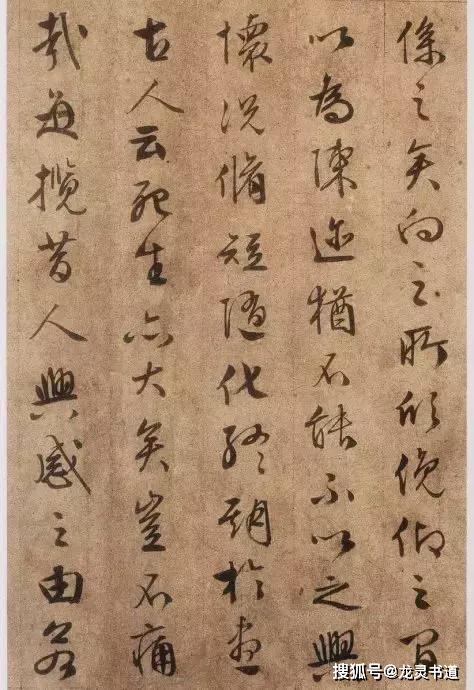 係之矣向之所欣俛仰之間
以為陳迹猶不能不以之興
懷況脩短隨化終期於盡
古人云死生亦大矣豈不痛
哉每攬昔人興感之由若
搜狐号@龙灵书道